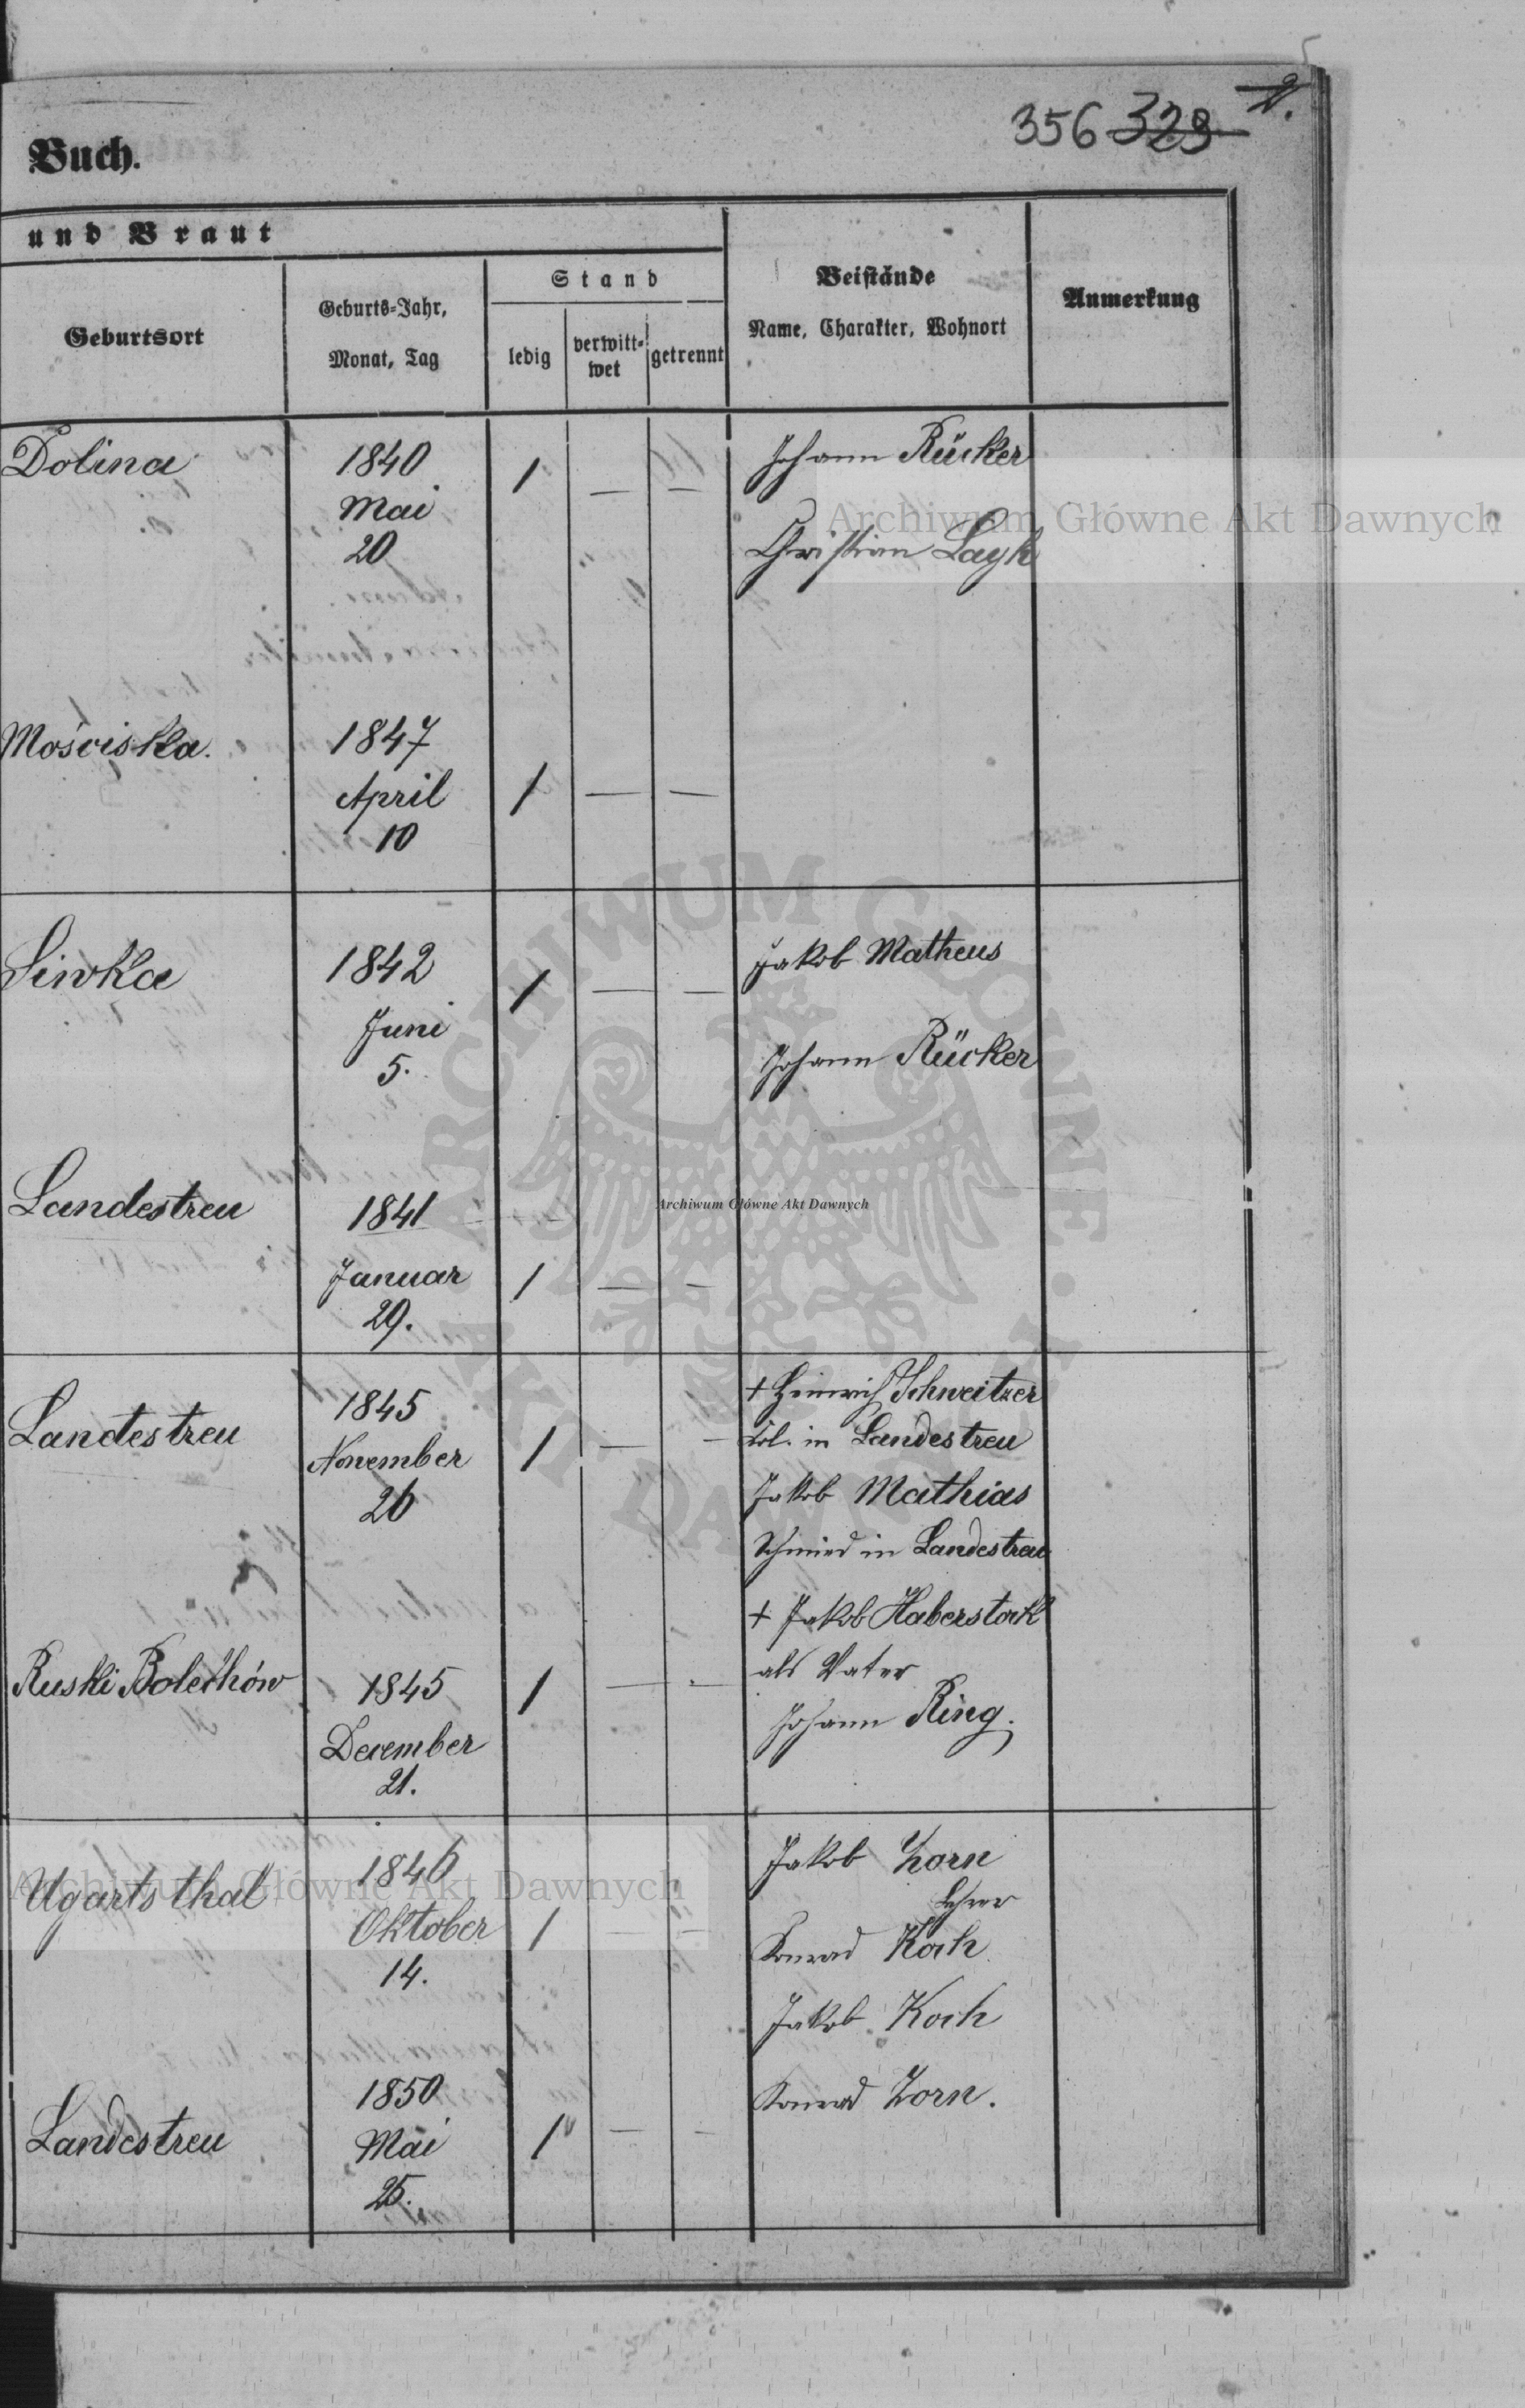 356 329 2.
Buch.
und Braut
Geburtsort
Geburts-Jahr,
Monat, Tag
Stand
ledig
verwitt-
wet
getrennt
Beistände
Name, Charakter, Wohnort
Anmerkung
Dolina
1840
Mai
20
1 — —
Johann Rücker
Christian Layh
Mościska.
1847
April
10
1 — —
Siwka
1842
Juni
5.
1 — —
Jakob Matheus
Johann Rücker
Landestreu
1841
Januar
29.
1 — —
Landestreu
1845
November
26
1 — —
+ Heinrich Schweitzer
Kol. in Landestreu
Jakob Mathias
Schmied in Landestreu
Ruski Bolechów
1845
December
21.
1 — —
+ Jakob Haberstock
als Vater
Johann Ring.
Ugartsthal
1846
Oktober
14.
1 — —
Jakob Zorn
Lehrer
Konrad Koch
Jakob Koch
Konrad Zorn.
Landestreu
1850
Mai
25.
1 — —
Archiwum Główne Akt Dawnych
ARCHIWUM GŁÓWNE
AKT DAWNYCH
Archiwum Główne Akt Dawnych
Archiwum Główne Akt Dawnych